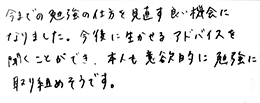 今までの勉強の仕方を見直す良い機会に
なりました。今後に生かせるアドバイスを
聞くことができ、本人も意欲的に勉強に
取り組めそうです。